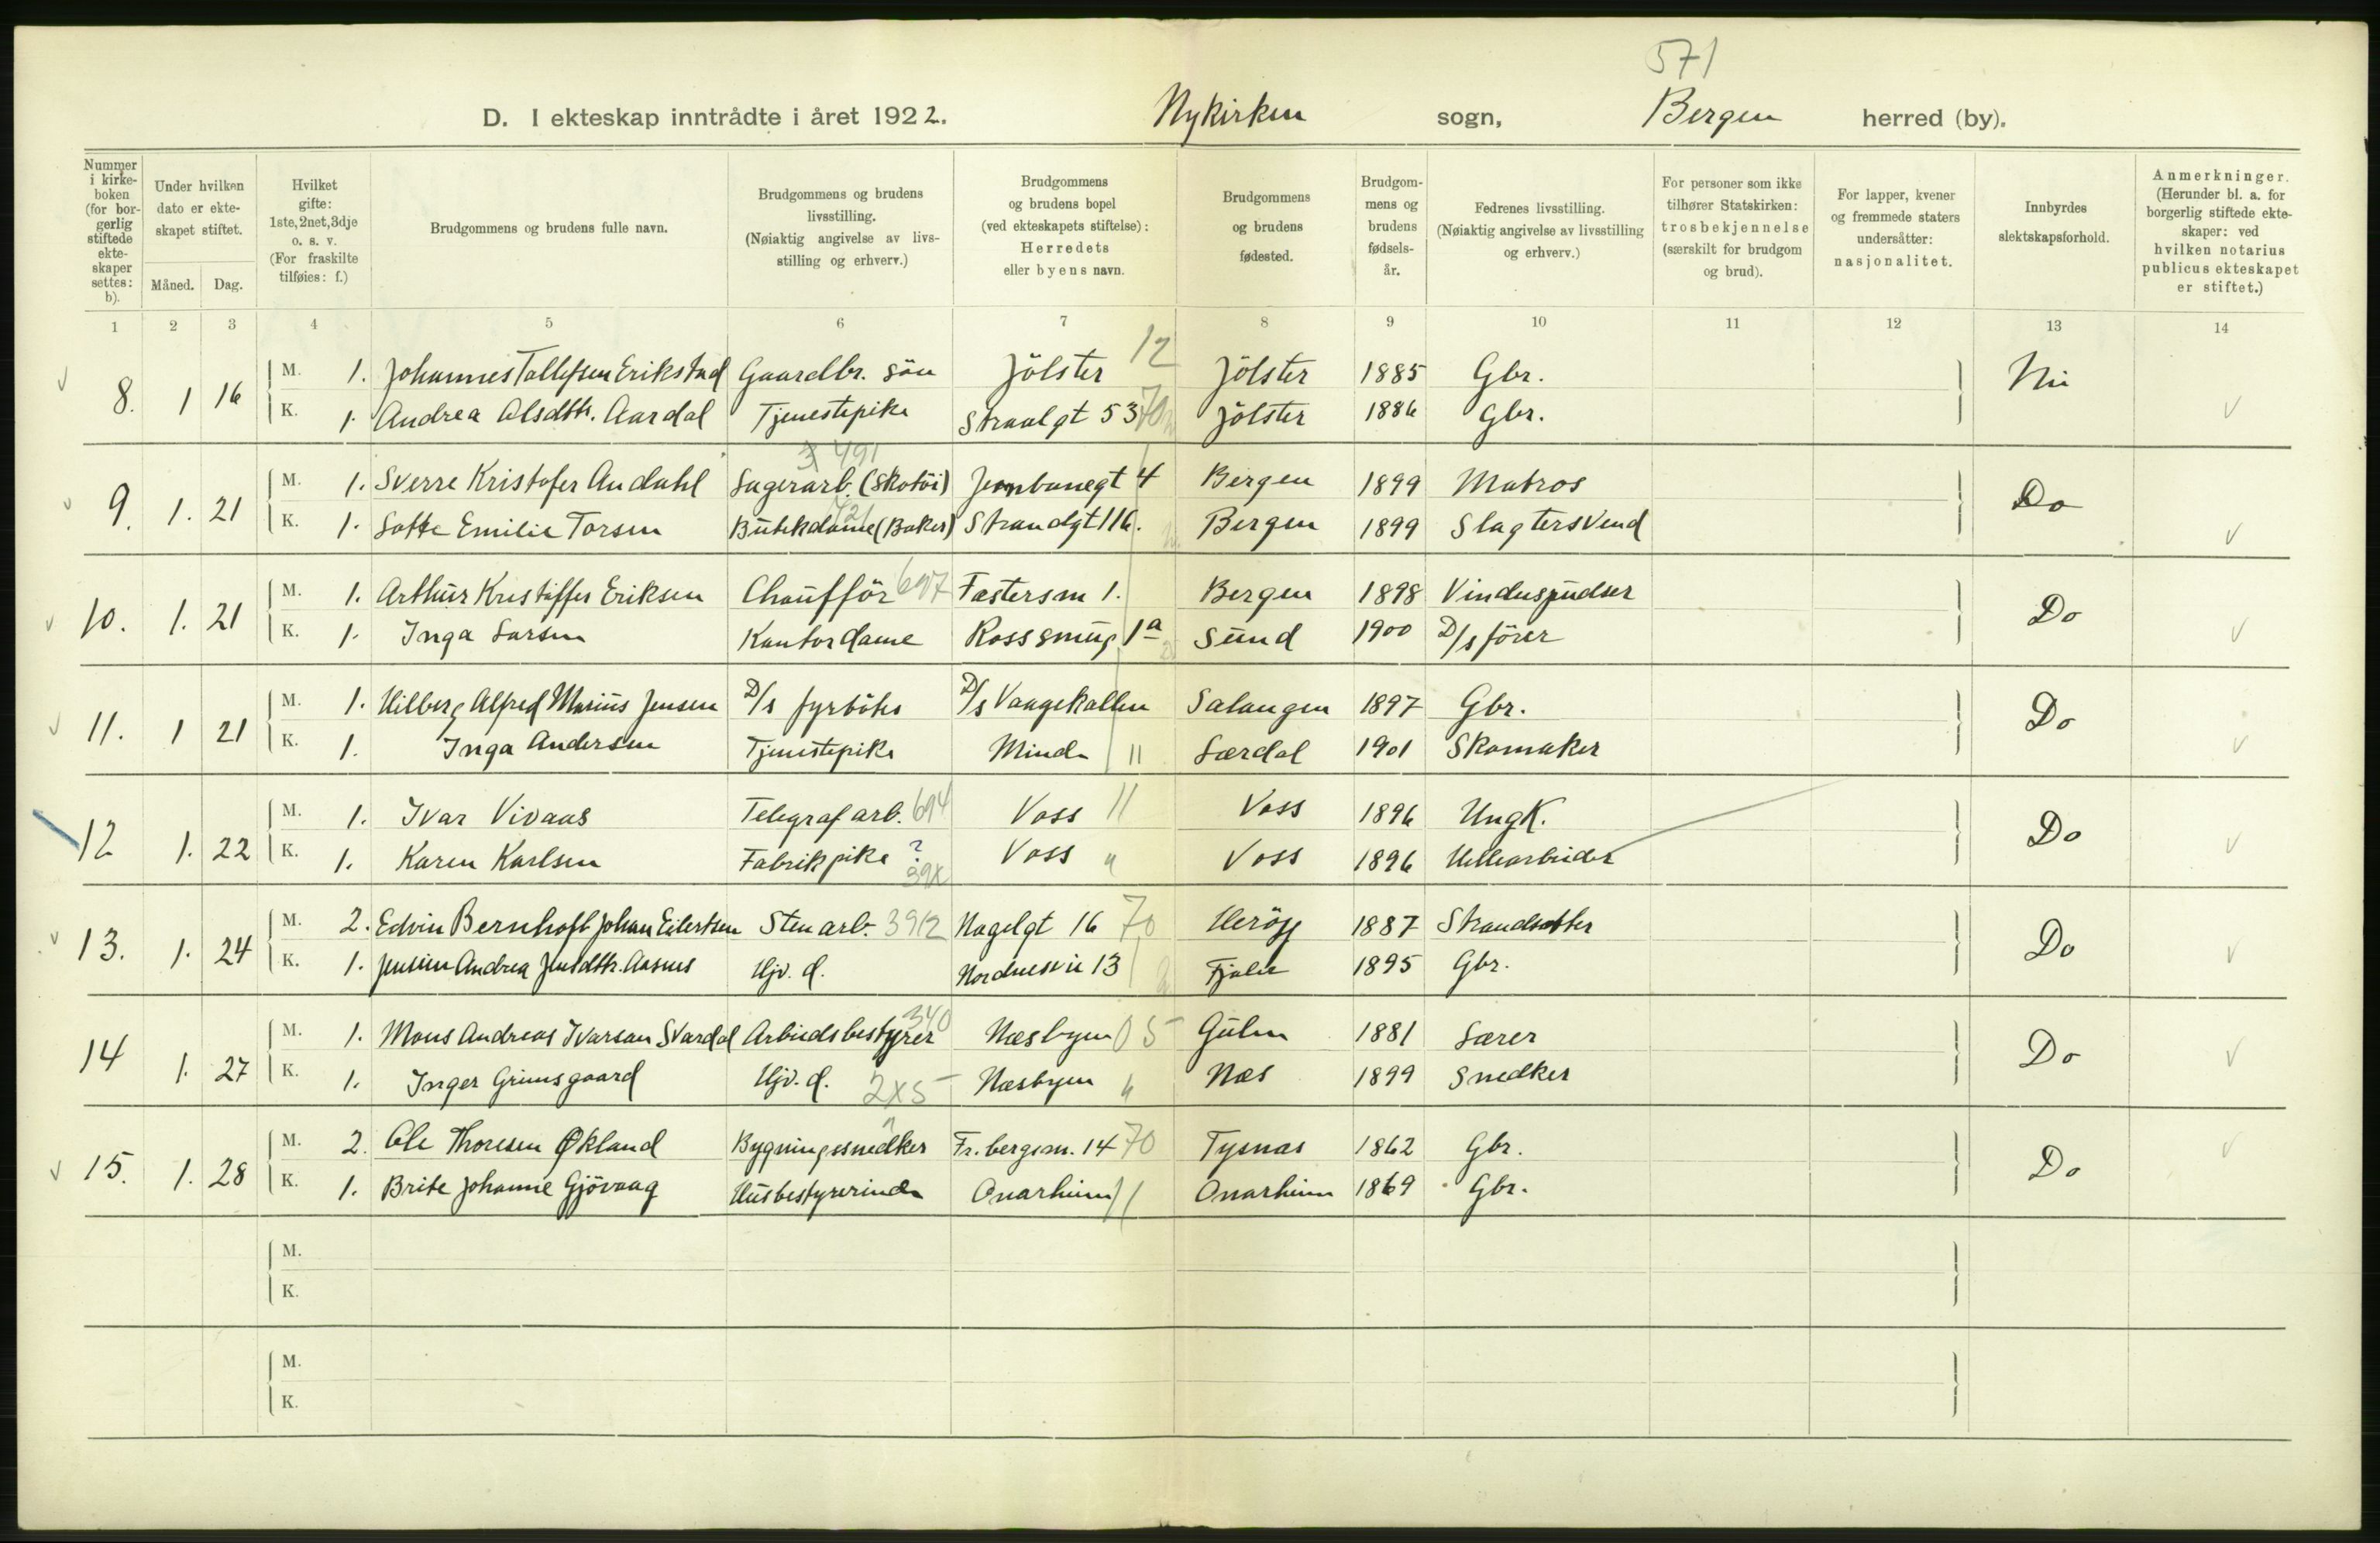 571
D. I ekteskap inntrådte i året 1922. Nykirken sogn, Bergen herred (by).
Nummer i kirke-boken (for bor-gerlig stiftede ekte-skaper settes: b).
Under hvilken dato er ekte-skapet stiftet.
Måned. Dag.
Hvilket gifte: 1ste, 2net, 3dje o. s. v. (For fraskilte tilføies: f.)
Brudgommens og brudens fulle navn.
Brudgommens og brudens livsstilling. (Nøiaktig angivelse av livs-stilling og erhverv.)
Brudgommens og brudens bopel (ved ekteskapets stiftelse): Herredets eller byens navn.
Brudgommens og brudens fødested.
Brudgom-mens og brudens fødsels-år.
Fedrenes livsstilling. (Nøiaktig angivelse av livsstilling og erhverv.)
For personer som ikke tilhører Statskirken: trosbekjennelse (særskilt for brudgom og brud).
For lapper, kvener og fremmede staters undersåtter: nasjonalitet.
Innbyrdes slektskapsforhold.
Anmerkninger. (Herunder bl. a. for borgerlig stiftede ekte-skaper: ved hvilken notarius publicus ekteskapet er stiftet.)
1 2 3 4 5 6 7 8 9 10 11 12 13 14
8. 1 16 M. 1. Johannes Tollefsen Erikstad Gaardbr. sön Jölster 12 Jölster 1885 Gbr. Nei
K. 1. Andrea Olsdttr. Aardal Tjenestepike Strandgt 53 70 Jölster 1886 Gbr. v
9. 1. 21 M. 1. Sverre Kristofer Andahl Lagerarb. (Skotöi) 491 Jernbanegt 4 Bergen 1899 Matros Do
K. 1. Lotte Emilie Torsen Butikdame (Baker) 721 Strandgt 116. Bergen 1899 Slagtersvend v
10. 1. 21 M. 1. Arthur Kristoffer Eriksen Chaufför 697 Fastersm 1. Bergen 1898 Vinduspudser Do
K. 1. Inga Larsen Kontordame Rosssmug 1a Sund 1900 D/s förer v
11. 1 21 M. 1. Hilberg Alfred Marius Jensen D/s fyrböter D/s Vaagekallen Salangen 1897 Gbr. Do
K. 1. Inga Andersen Tjenestepike Minde 11 Lærdal 1901 Skomaker v
12 1. 22 M. 1. Ivar Vivaas Telegrafarb. 694 Voss 11 Voss 1896 UngK. Do
K. 1. Karen Karlsen Fabrikpike ? 39x Voss " Voss 1896 Hellearbeider v
13. 1. 24 M. 2. Edvin Bernhoft Johan Eilertsen Stenarb. 3912 Nagelgt 16 70 Heröy 1887 Strandsitter Do
K. 1. Jensine Andrea Jensdttr. Aasnes Hjv. d. Nordnesvei 13 Fjaler 1895 Gbr. v
14 1. 27 M. 1. Mons Andreas Ivarson Svardal Arbeidsbestyrer 340 Næsbyen 05 Gulen 1881 Lærer Do
K. 1. Inger Grimsgaard Hjv. d. 2x5 Næsbyen " Næs 1899 Snedker v
15. 1. 28 M. 2. Ole Thoresen Økland Bygningssnedker Fr.bergsm. 14 70 Tysnæs 1862 Gbr. Do
K. 1. Brite Johanne Gjövaag Husbestyrerinde Onarheim 11 Onarheim 1869 Gbr. v
M.
K.
M.
K.